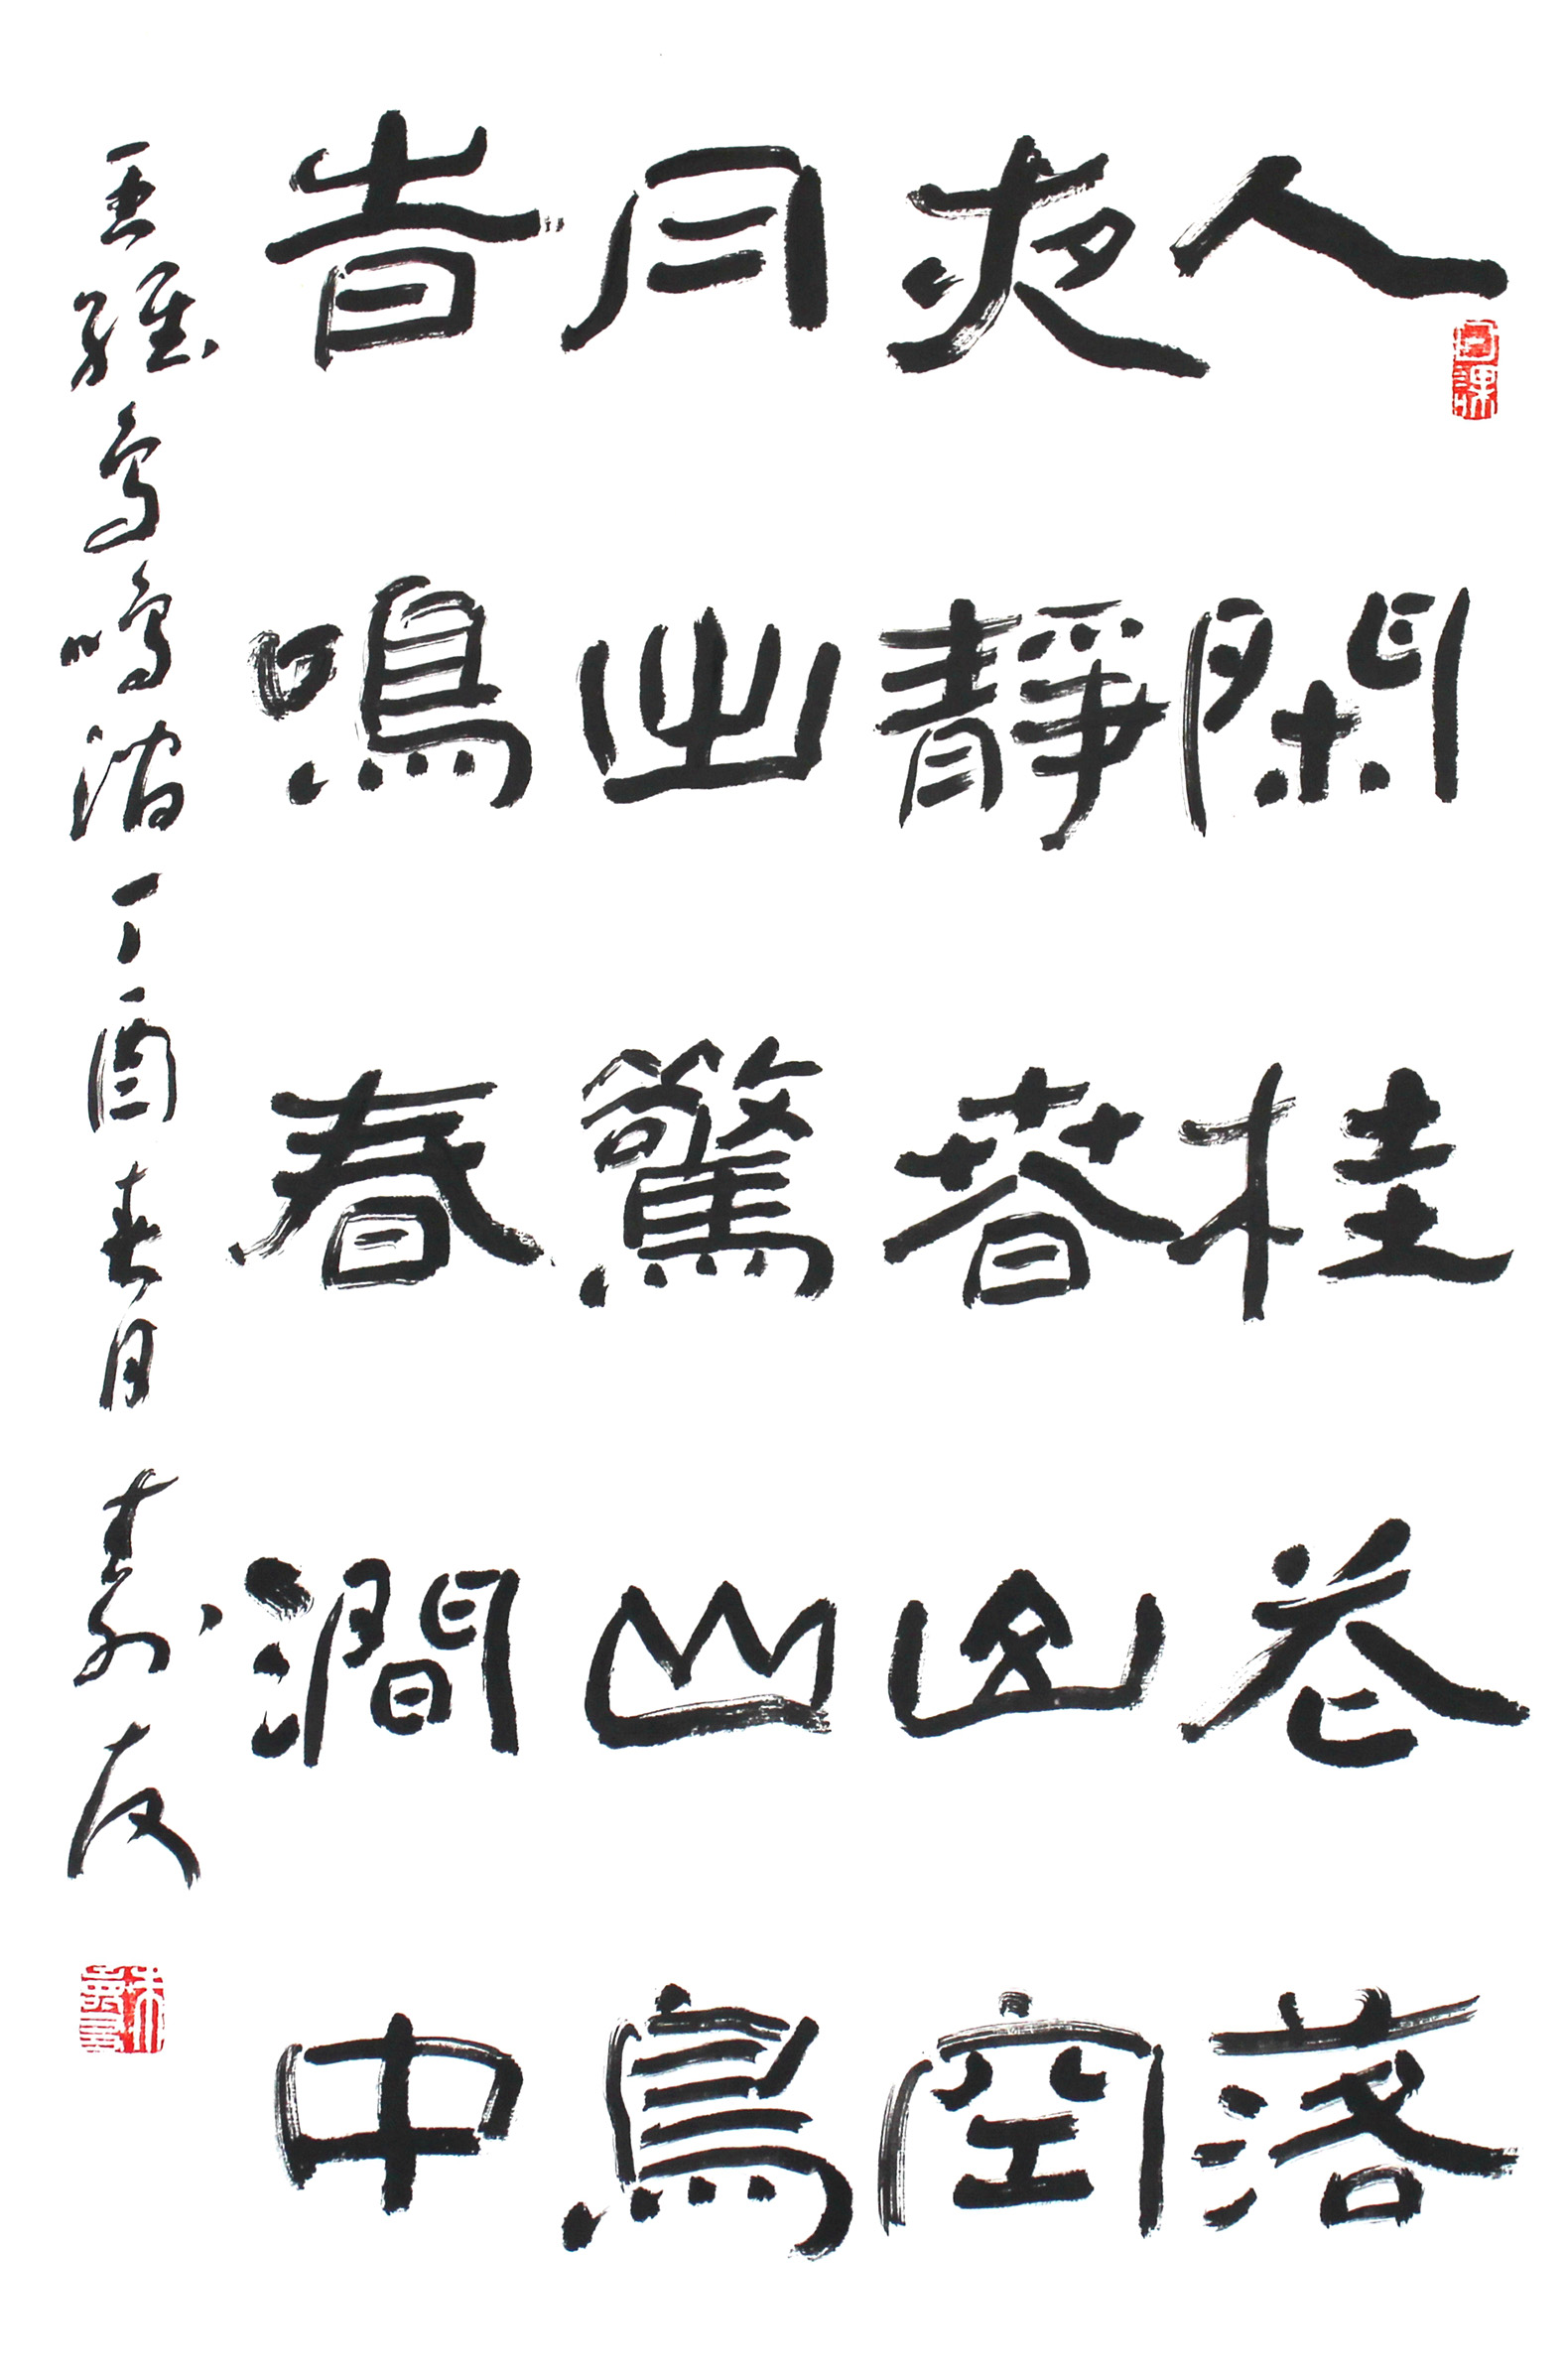 日課
人閑桂花落
夜靜春山空
月出驚山鳥
旹鳴春澗中
王維鳥鳴澗丁酉春月寿友